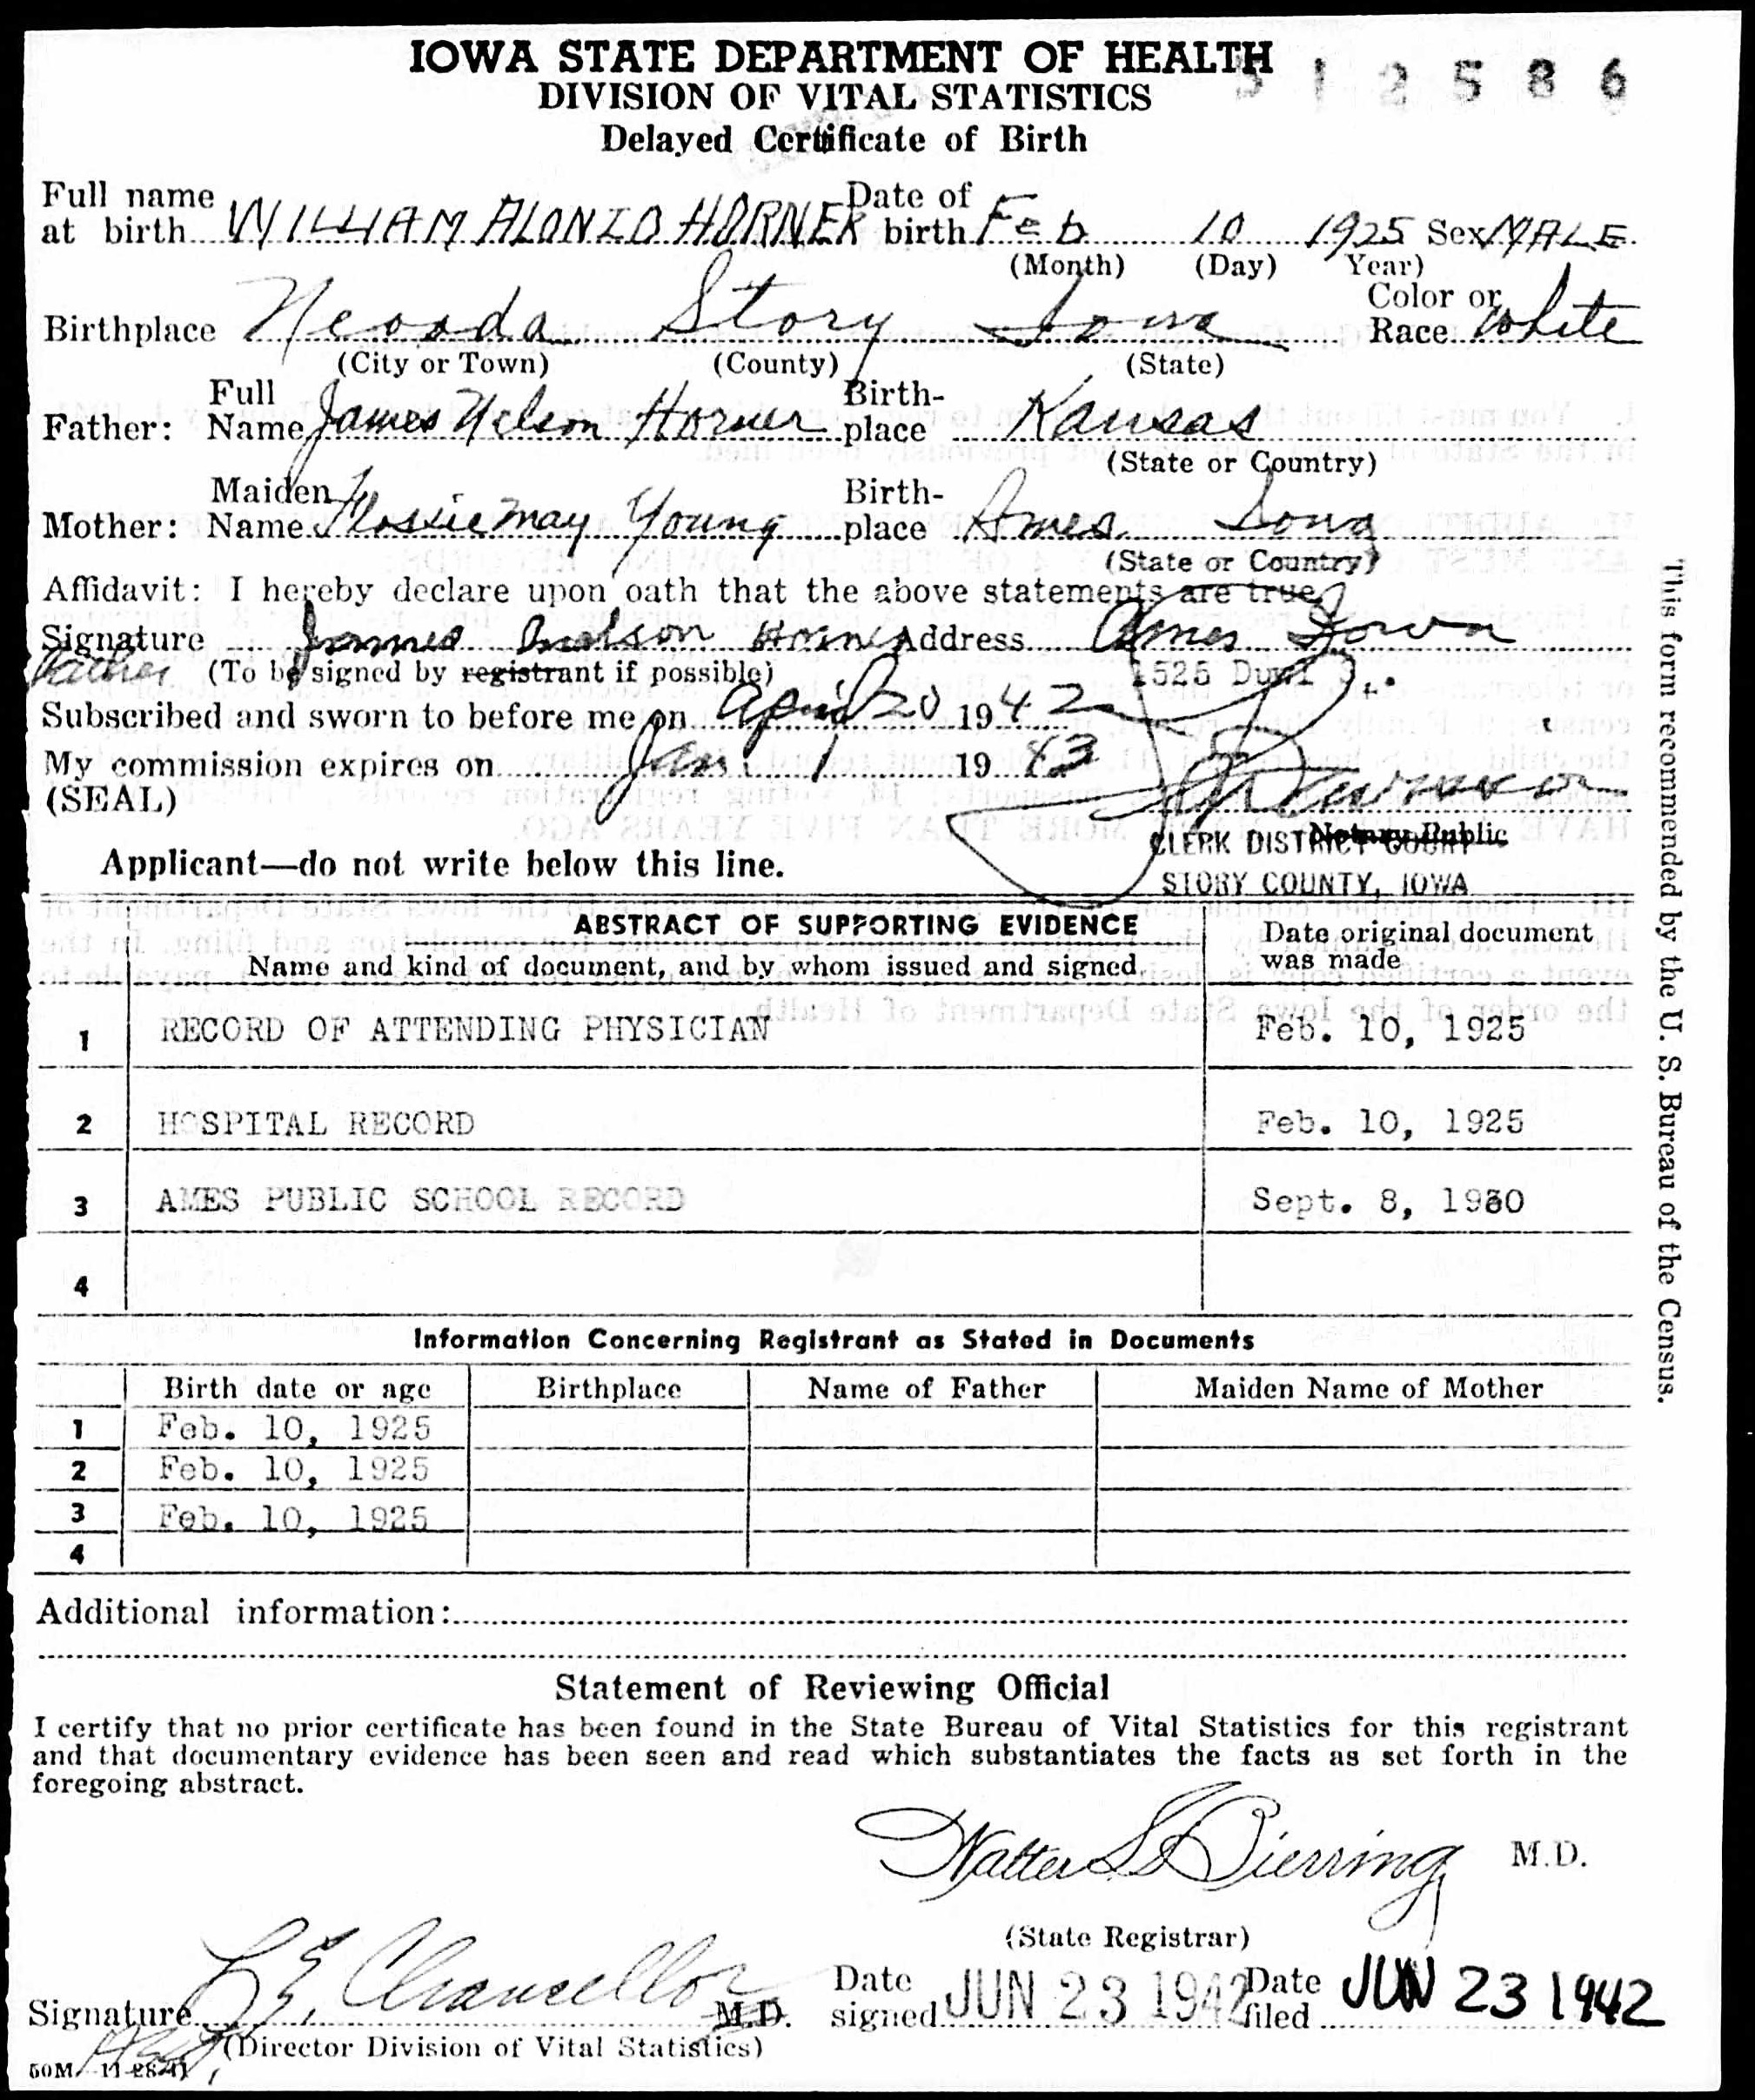 IOWA STATE DEPARTMENT OF HEALTH
DIVISION OF VITAL STATISTICS
Delayed Certificate of Birth
512586
Full name at birth WILLIAM ALONZO HORNER Date of birth Feb 10 1925 Sex MALE
(Month) (Day) Year)
Birthplace Nevada Story Iowa Color or Race White
(City or Town) (County) (State)
Father: Full Name James Nelson Horner Birth-place Kansas
(State or Country)
Mother: Maiden Name Flossie May Young Birth-place Ames Iowa
(State or Country)
Affidavit: I hereby declare upon oath that the above statements are true.
Signature James Nelson Horner Address Ames Iowa
Father (To be signed by registrant if possible) 1525
Subscribed and sworn to before me on April 20 1942
My commission expires on Jan 1 1943
(SEAL)
Notary Public
CLERK DISTRICT COURT
STORY COUNTY, IOWA
Applicant—do not write below this line.
ABSTRACT OF SUPPORTING EVIDENCE
Name and kind of document, and by whom issued and signed Date original document was made
1 RECORD OF ATTENDING PHYSICIAN Feb. 10, 1925
2 HOSPITAL RECORD Feb. 10, 1925
3 AMES PUBLIC SCHOOL RECORD Sept. 8, 1930
4
Information Concerning Registrant as Stated in Documents
Birth date or age Birthplace Name of Father Maiden Name of Mother
1 Feb. 10, 1925
2 Feb. 10, 1925
3 Feb. 10, 1925
4
Additional information:
Statement of Reviewing Official
I certify that no prior certificate has been found in the State Bureau of Vital Statistics for this registrant
and that documentary evidence has been seen and read which substantiates the facts as set forth in the
foregoing abstract.
Walter L Bierring M.D.
(State Registrar)
Signature L E Chancellor M.D. Date signed JUN 23 1942 Date filed JUN 23 1942
(Director Division of Vital Statistics)
50M 11-28-41
This form recommended by the U. S. Bureau of the Census.